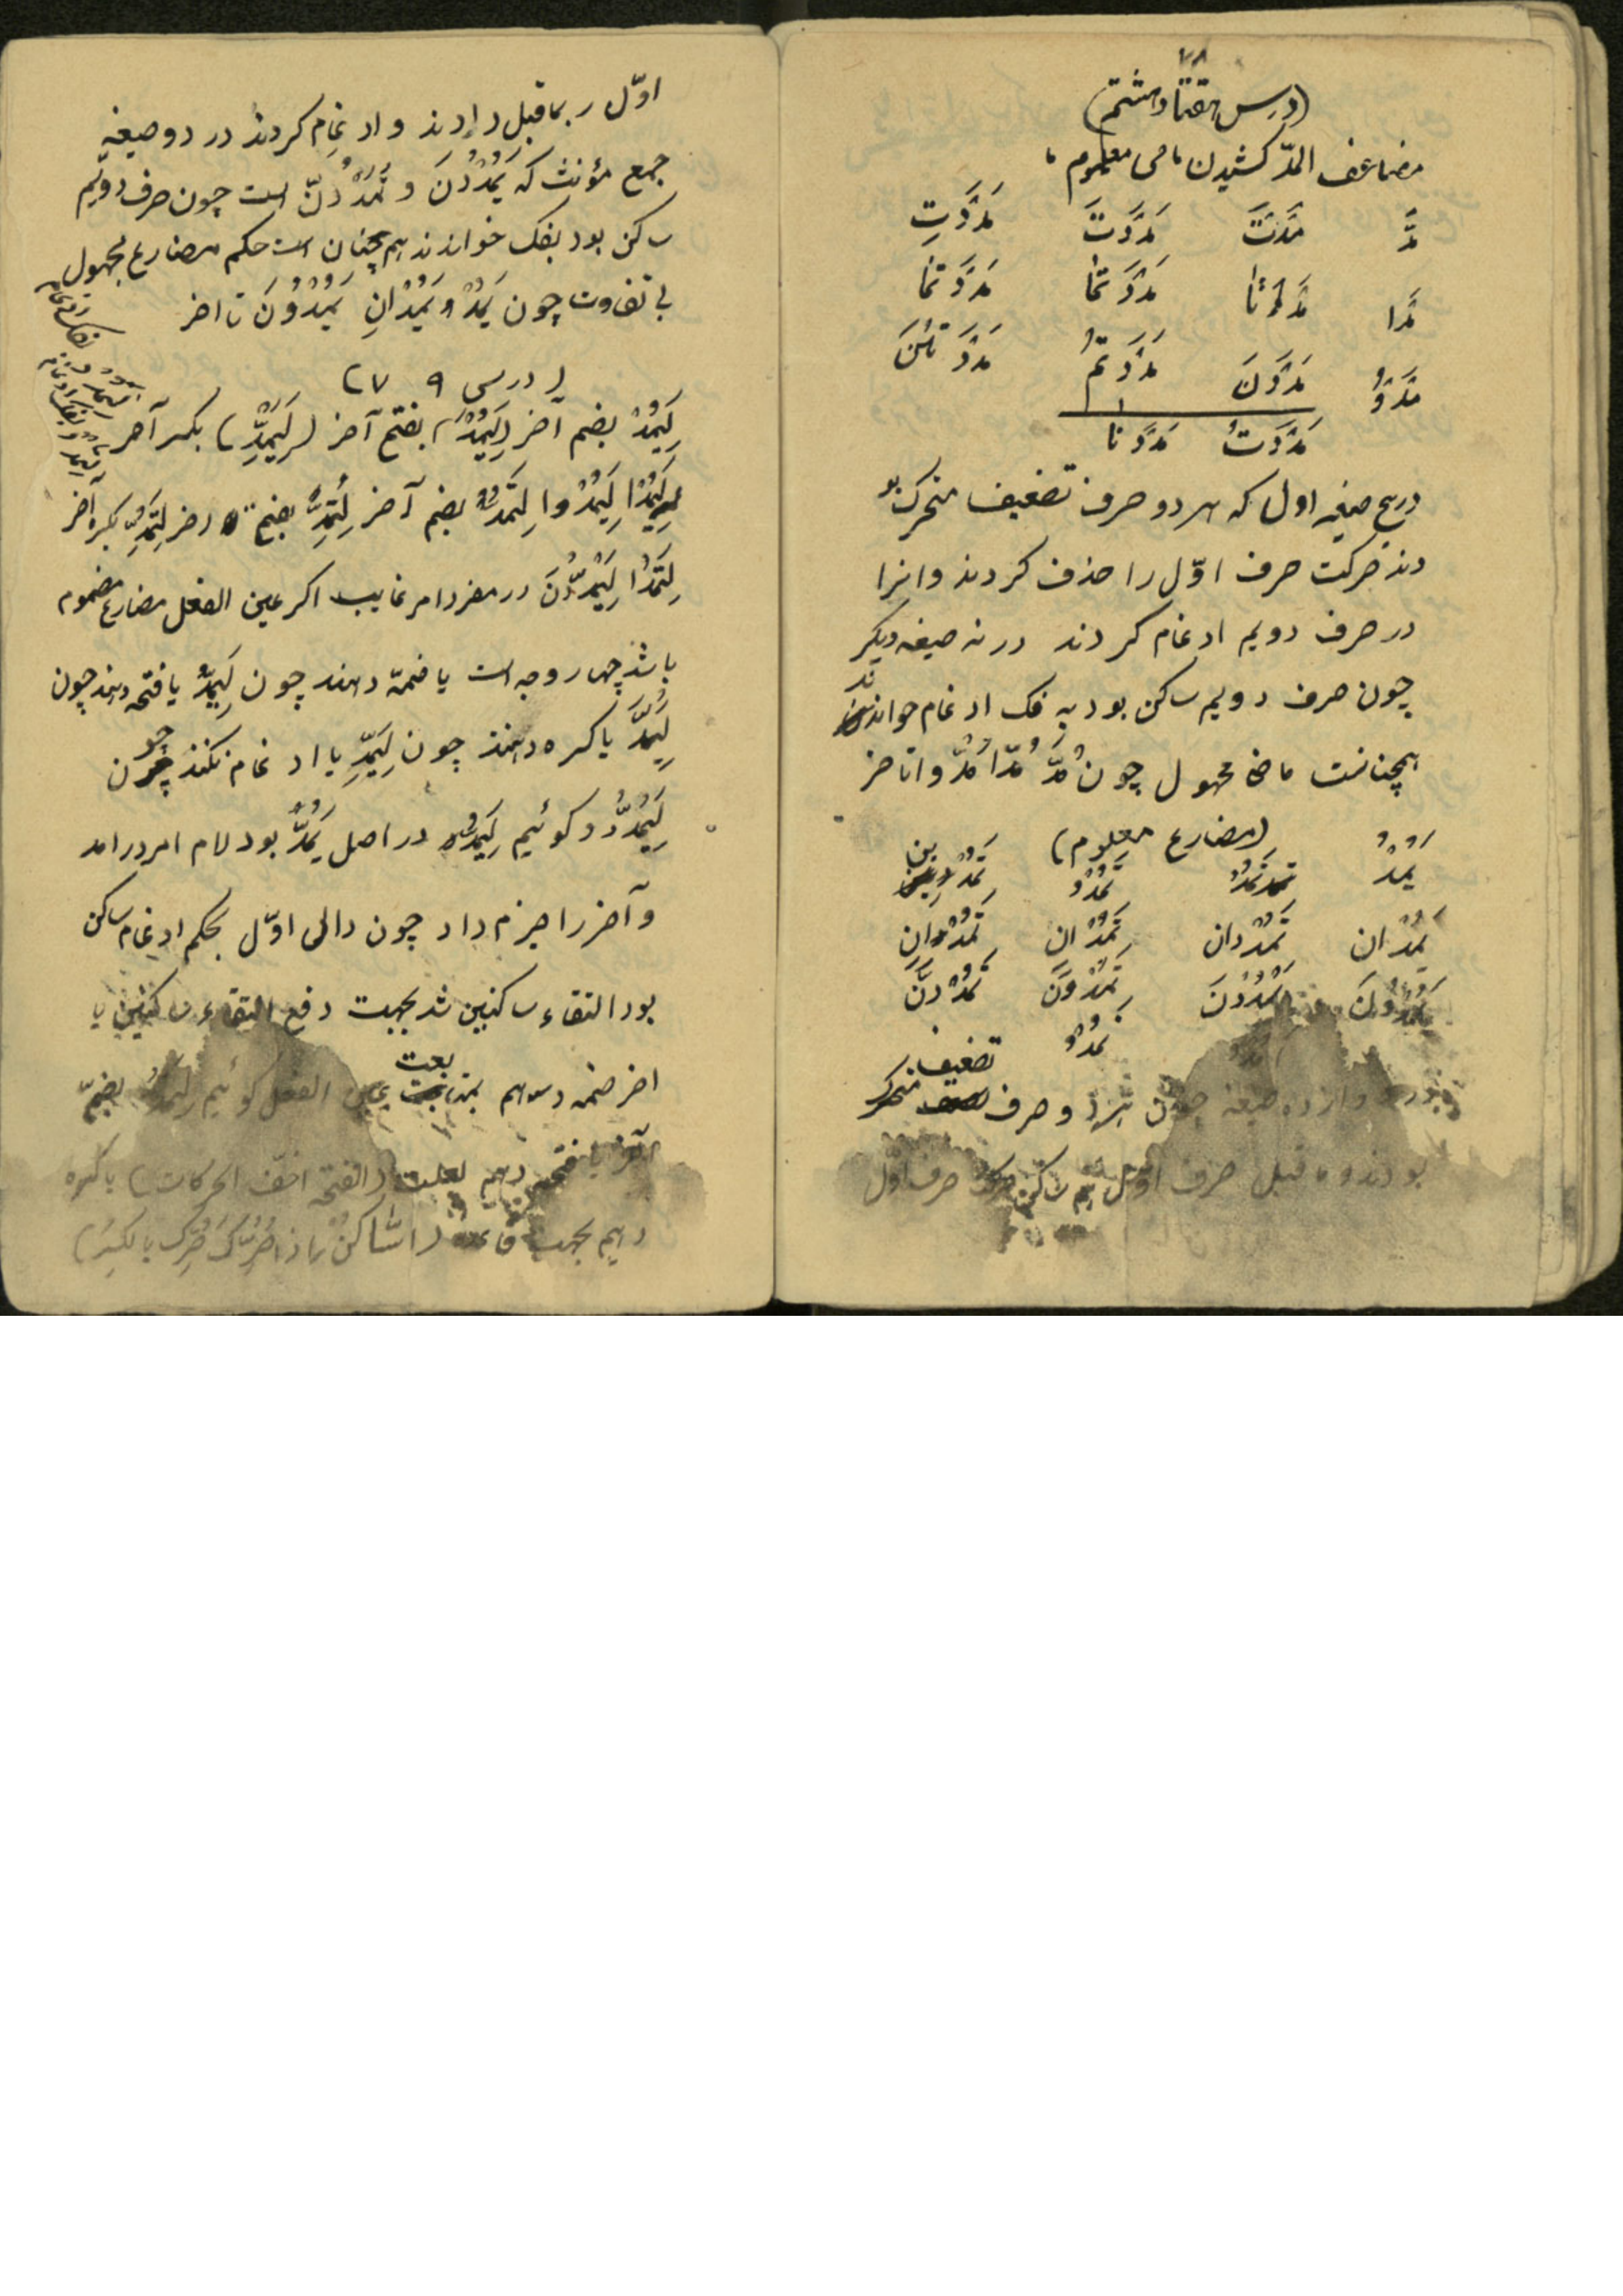 ۷۸
(درس هفتاد و هشتم)
مضاعف المدّ کشیدن ماضی معلوم
مَدَّ مَدَّتْ مَدَدْتَ مَدَدْتِ
مَدَّا مَدَّتَا مَدَدْتُمَا مَدَدْتُمَا
مَدُّوا مَدَدْنَ مَدَدْتُمْ مَدَدْتُنَّ
مَدَدْتُ مَدَدْنَا
در پنج صیغه اول که هر دو حرف تضعیف متحرک بو
دند حرکت حرف اوّل را حذف کردند و انرا
در حرف دویم ادغام کردند در نه صیغه دیکر
چون حرف دویم ساکن بود به فک ادغام خواندند
همچنانست ماضی مجهول چون مُدَّ مُدّا مُدّوا تا اخر
(مضارع معلوم)
یَمُدُّ تَمُدُّ تَمُدُّ تَمُدّین
یَمُدّان تَمُدّان تَمُدّان تَمُدّانِ
یَمُدّونَ یَمْدُدْنَ تَمُدّونَ تَمْدُدْنَ
نَمُدُّ
صیغه چون هر دو حرف تضعیف متحرک
بودند و ما قبل حرف اوّل هم ساکن حرکت حرف اوّل
اوّل ر بماقبل دادند و ادغام کردند در دو صیغه
جمع مؤنث که یَمْدُدْنَ و تَمْدُدْنَ است چون حرف دویّم
ساکن بود بفک خواندند همچنان است حکم مضارع مجهول
بی تفاوت چون یُمَدُّ و یُمَدّانِ یُمَدّوُنَ تا اخر
(درسی ۷۹)
لِیَمُدُّ بضم آخر (لِیَمُدَّ) بفتح آخر (لِیَمُدِّ) بکسر آخر
لِیَمُدّا لِیَمُدّوا لِتَمُدُّ بضم آخر لِتَمُدَّ بفتح اخر لِتَمُدِّ بکسره آخر
لِتَمُدّا لِیَمْدُدْنَ در مفرد امر غایب اکر عین الفعل مضارع مضموم
باشد چهار وجه است یا ضمّه دهند چون لِیَمُدُّ یا فتحه دهند چون
لِیَمُدَّ یا کسره دهند چون لِیَمُدِّ یا ادغام نکنند چون
لِیَمْدُدْ کوئیم لِیَمُدُّ در اصل یَمُدُّ بود لام امر در امد
و آخر را جزم داد چون دالی اوّل بحکم ادغام ساکن
بود التقاء ساکنین شد بجهت دفع التقاء ساکنین یا
اخر ضمه دهیم بمتابعت عین الفعل کوئیم لِیَمُدُّ بضمّ
آخر یا فتحه دهیم لعلت (الفتحة اخفّ الحرکات) یا کسره
دهیم بجهت قاعده (السّاکن اذا حُرِّکَ حُرِّکَ بالکسر)